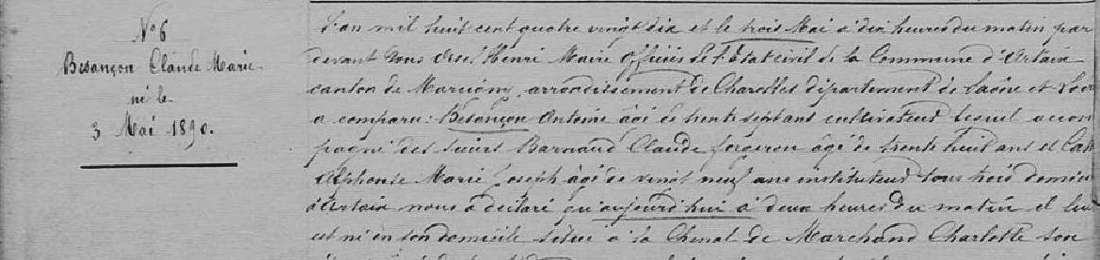 N° 6
Besançon Claude Marie
né le
3 Mai 1890.
L'an mil huit cent quatre vingt dix et le trois Mai à dix heures du matin par
devant nous Henri Maire officier de l'Etat civil de la Commune d'Artaix
canton de Marcigny, arrondissement de Charolles département de Saône et Loire
a comparu: Besançon Antoine âgé de trente sept ans cultivateur lequel accom
pagné des sieurs Barnaud Claude forgeron âgé de trente huit ans et
Alphonse Marie Joseph âgé de vingt neuf ans instituteur tous trois
d'Artaix nous a déclaré qu'aujourd'hui à deux heures du matin il lui
est né en son domicile situé à la Chenal de Marchand Charlotte son